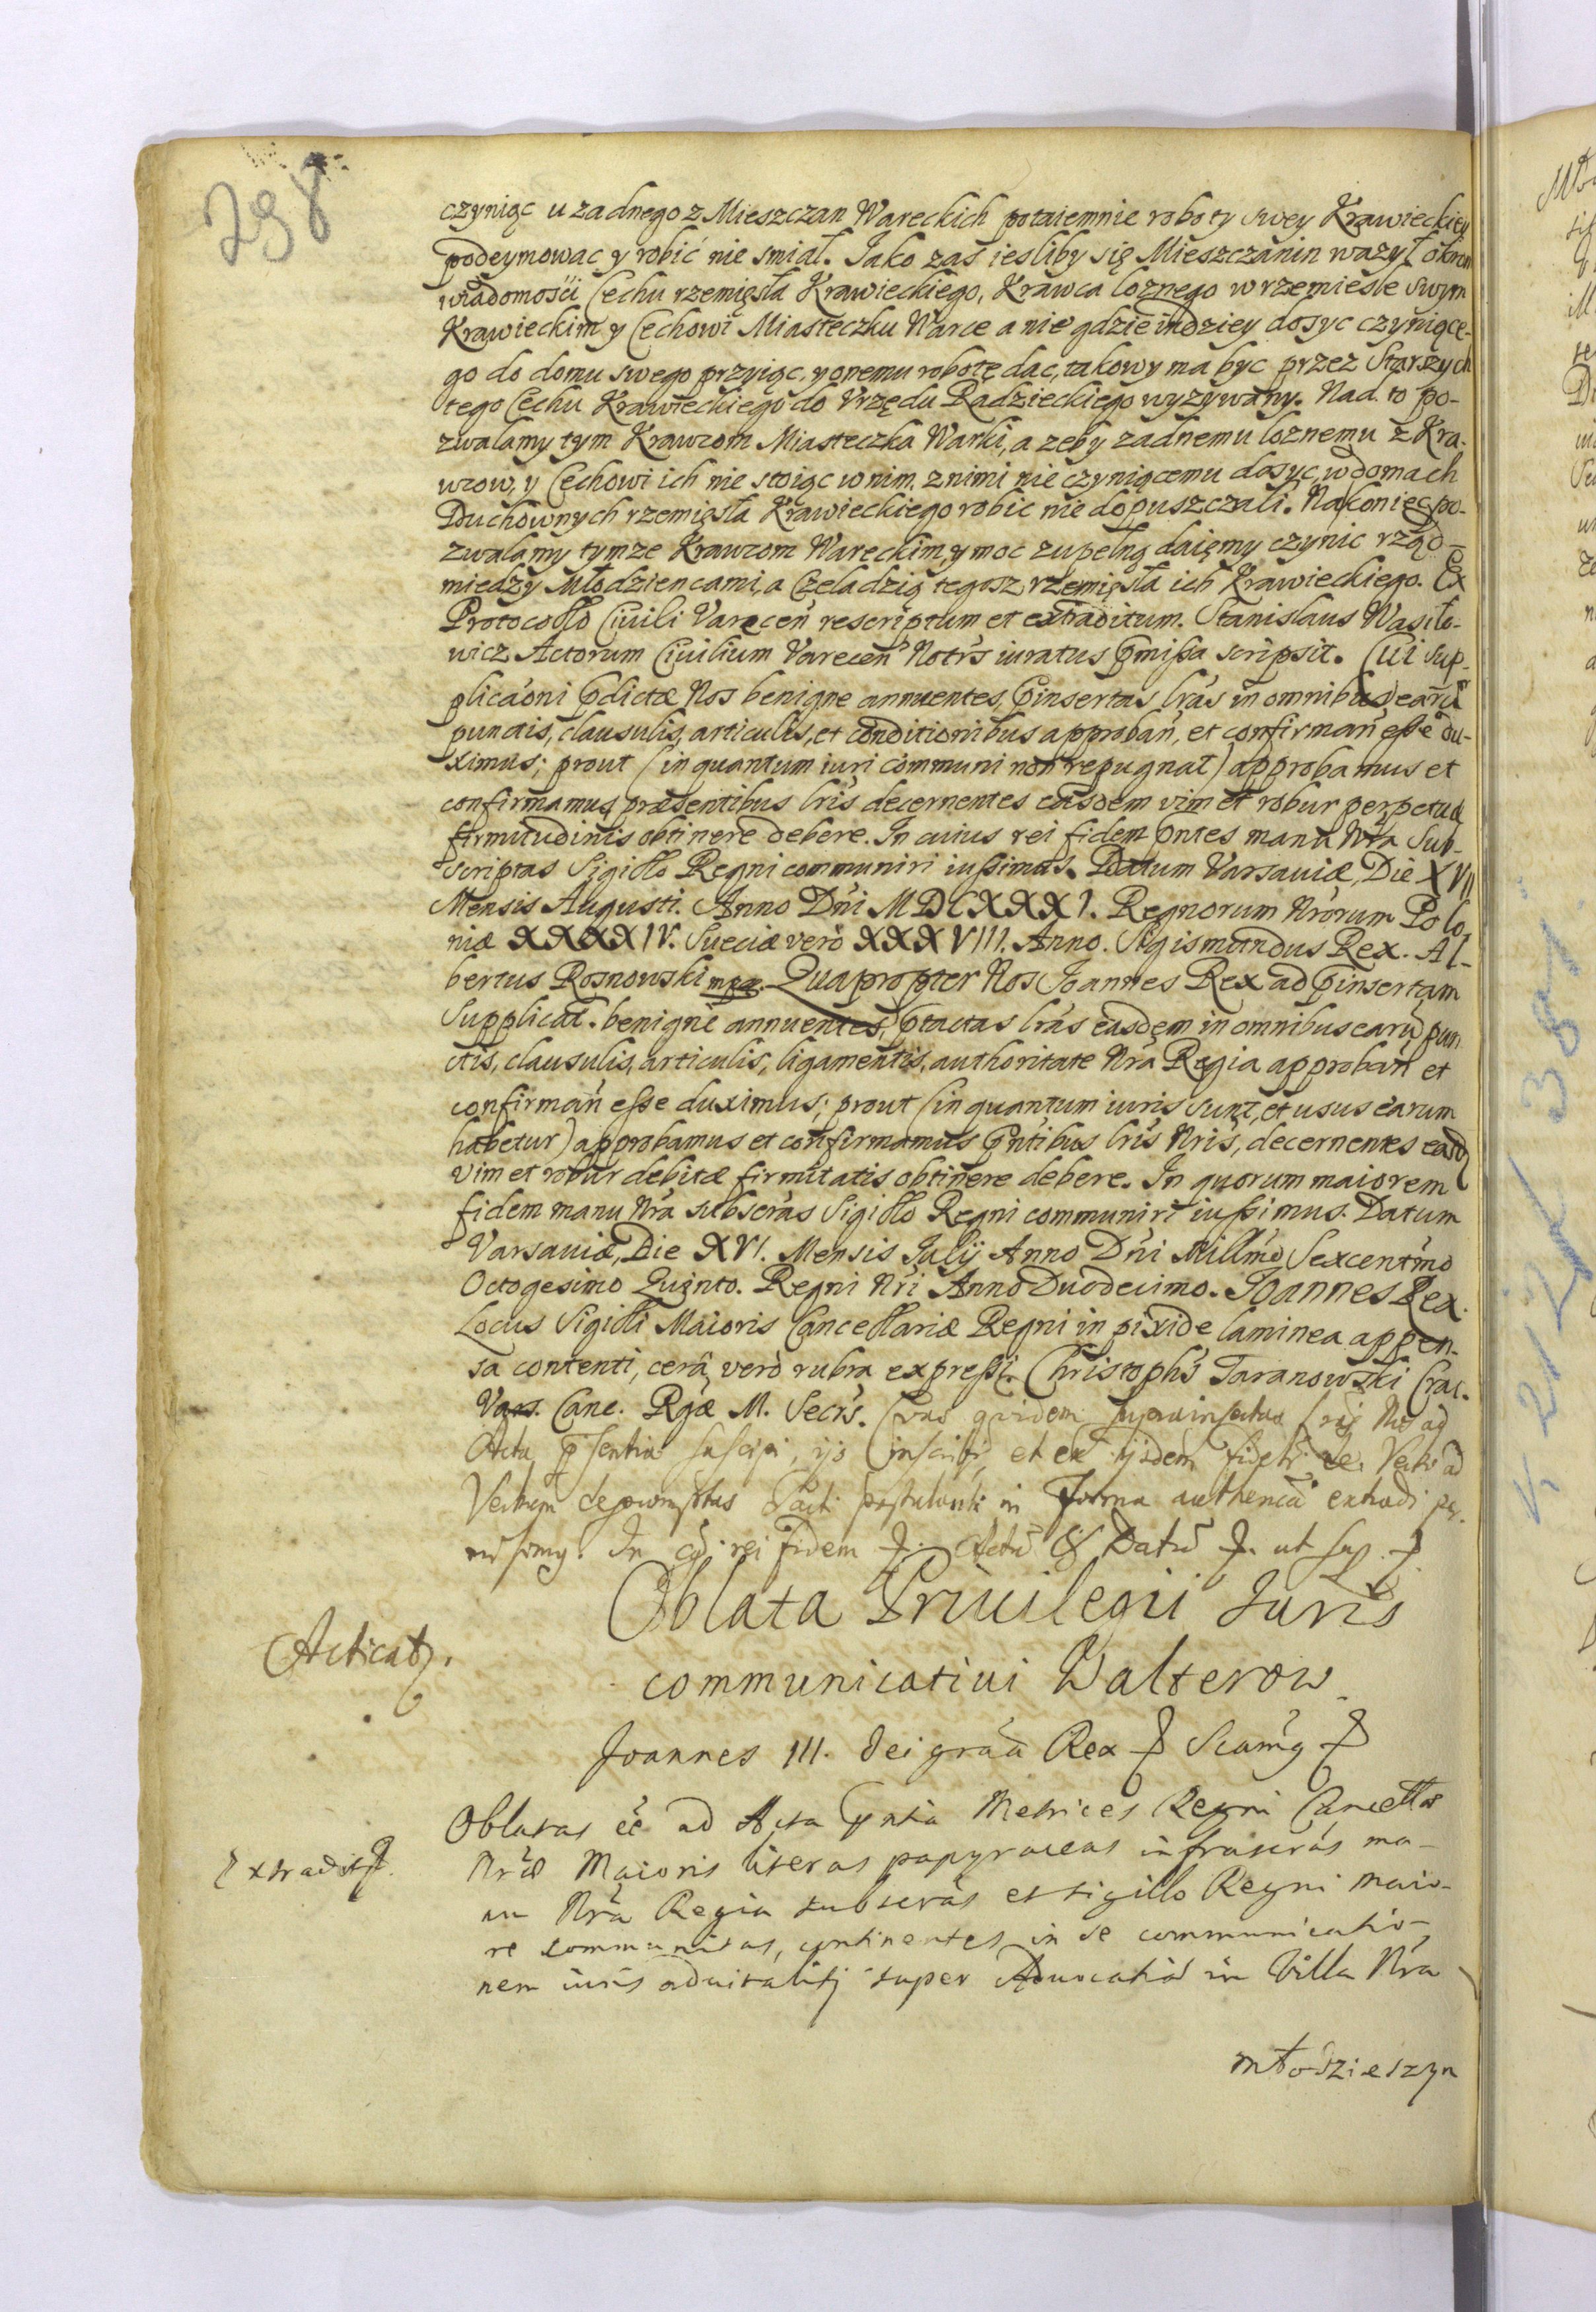 298
czyniąc u zadnego z Mieszczan Wareckich potaiemnie roboty swey Krawieckiey
podeymowac y robić nie smiał. Jako zaś iesliby się Mieszczanin wazył okrom
wiadomosci Cechu rzemięsła Krawieckiego, Krawca loznego w rzemiesle swym
Krawieckim y Cechowi Miasteczku Warce a nie gdzie indziey dosyc czyniące-
go do domu swego przyiąc, y onemu robotę dac, takowy ma byc przez Starszych
tego Cechu Krawieckiego do Vrzędu Radzieckiego wyzywany. Nad to po-
zwalamy tym Krawcom Miasteczka Warki, a zeby zadnemu loznemu z Kra-
wcow, y Cechowi ich nie stoiąc w nim, z nimi nie czyniącemu dosyc, w domach
Duchownych rzemięsła Krawieckiego robic nie dopuszczali. Nakoniec po-
zwalamy tymze Krawcom Wareckim, y moc zupełną daięmy czynic rząd
miedzy Młodziencami, a Czeladzią tegosz rzemięsła ich Krawieckiego. Ex
Protocollo Civili Varecen rescriptum et extraditum. Stanislaus Wasilo-
wicz Actorum Civilium Varecen Notrs iuratus pmissa scripsit. Cui sup-
plicaoni pdictæ Nos benigne annuentes, pinsertas lras in omnibus earu
punctis, clausulis, articulis, et conditionibus approban, et confirman esse du-
ximus; prout (in quantum iuri communi non repugnat) approbamus et
confirmamus præsentibus lris decernentes easdem vim et robur perpetuæ
firmitudinis obtinere debere. In cuius rei fidem pntes manu Nra sub-
scriptas Sigillo Regni communiri iussimus. Datum Varsaviæ, Die XVII
Mensis Augusti. Anno Dni MDCXXXI. Regnorum Nrorum Polo-
niæ XXXXIV. Sueciæ vero XXXVIII. Anno. Sigismundus Rex. Al-
bertus Rosnowski mpp. Quapropter Nos Joannes Rex ad pinsertam
Supplicat. benigne annuentes, ptactas lras easdem in omnibus earu pun
ctis, clausulis, articulis, ligamentis, authoritate Nra Regia approban et
confirman esse duximus; prout (in quantum iuris sunt, et usus earum
habetur) approbamus et confirmamus pntibus lris Nris, decernentes easd
vim et robur debitæ firmitatis obtinere debere. In quorum maiorem
fidem manu Nra subscras Sigillo Regni communiri iussimus. Datum
Varsaviæ, Die XVI. Mensis Iulij Anno Dni Millmo Sexcentmo
Octogesimo Quinto. Regni Nri Anno Duodecimo. Joannes Rex.
Locus Sigilli Maioris Cancellariæ Regni in pixide laminea appen-
sa contenti, cera vero rubra expressi. Christophs Taranowski Crac.
Vars. Canc. Rgæ M. Secrs. quidem Nos ad
Acta psentia suscipi, ijs inscribi, et ex ijsdem fideliter de Verbo ad
Verbum depromptas Parti postulanti in Forma authenca extradi per-
misimg. In cg. rei Fidem Actu & Datu ut sup.
Oblata Privilegii Iuris
Acticat.
communicativi Walterow
Joannes III. Dei graa Rex Scamg
Oblatas ee ad Acta pntia Metrices Regni Cancellæ
Extradit.
Nræ Maioris literas papyraceas infrascras ma-
nu Nra Regia subscras et sigillo Regni maio-
re communitas, continentes in se communicatio-
nem iuris advitalitj super Advocatia in Villa Nra
młodzieszyn